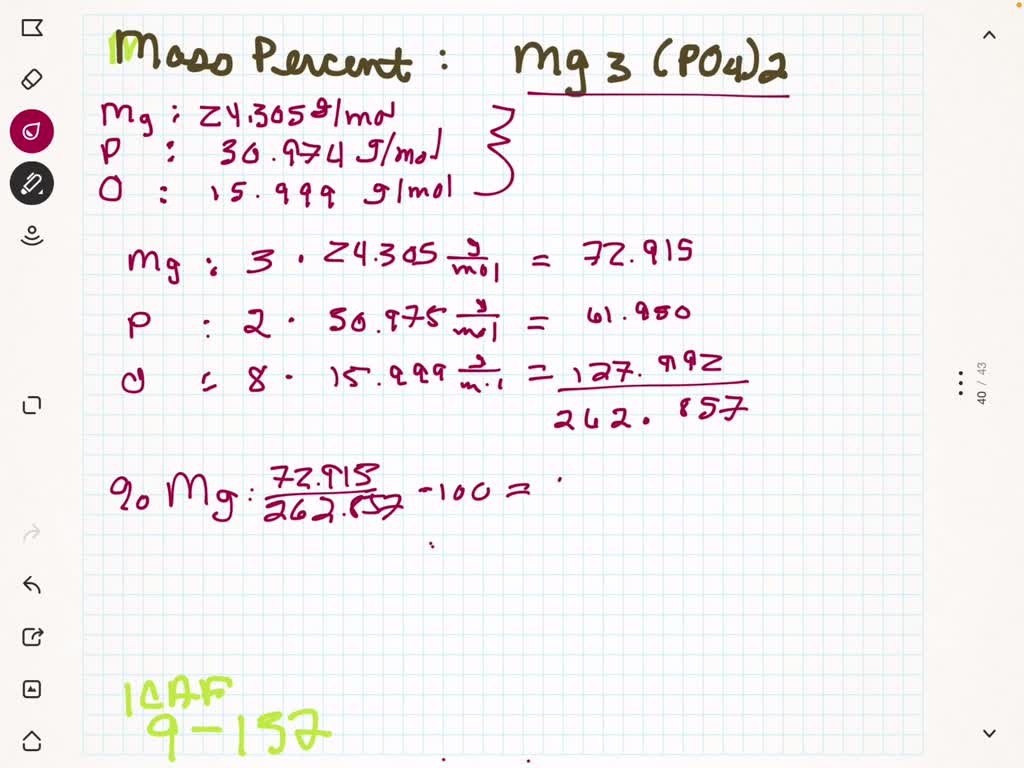 Mass Percent : Mg3(PO4)2
Mg : 24.305 g/mol
P : 30.974 g/mol
O : 15.999 g/mol
Mg : 3 · 24.305 g/mol = 72.915
P : 2 · 30.975 g/mol = 61.950
O : 8 · 15.999 g/mol = 127.992
262.857
% Mg : 72.915/262.857 · 100 =
40 / 43
1CAF
9-152